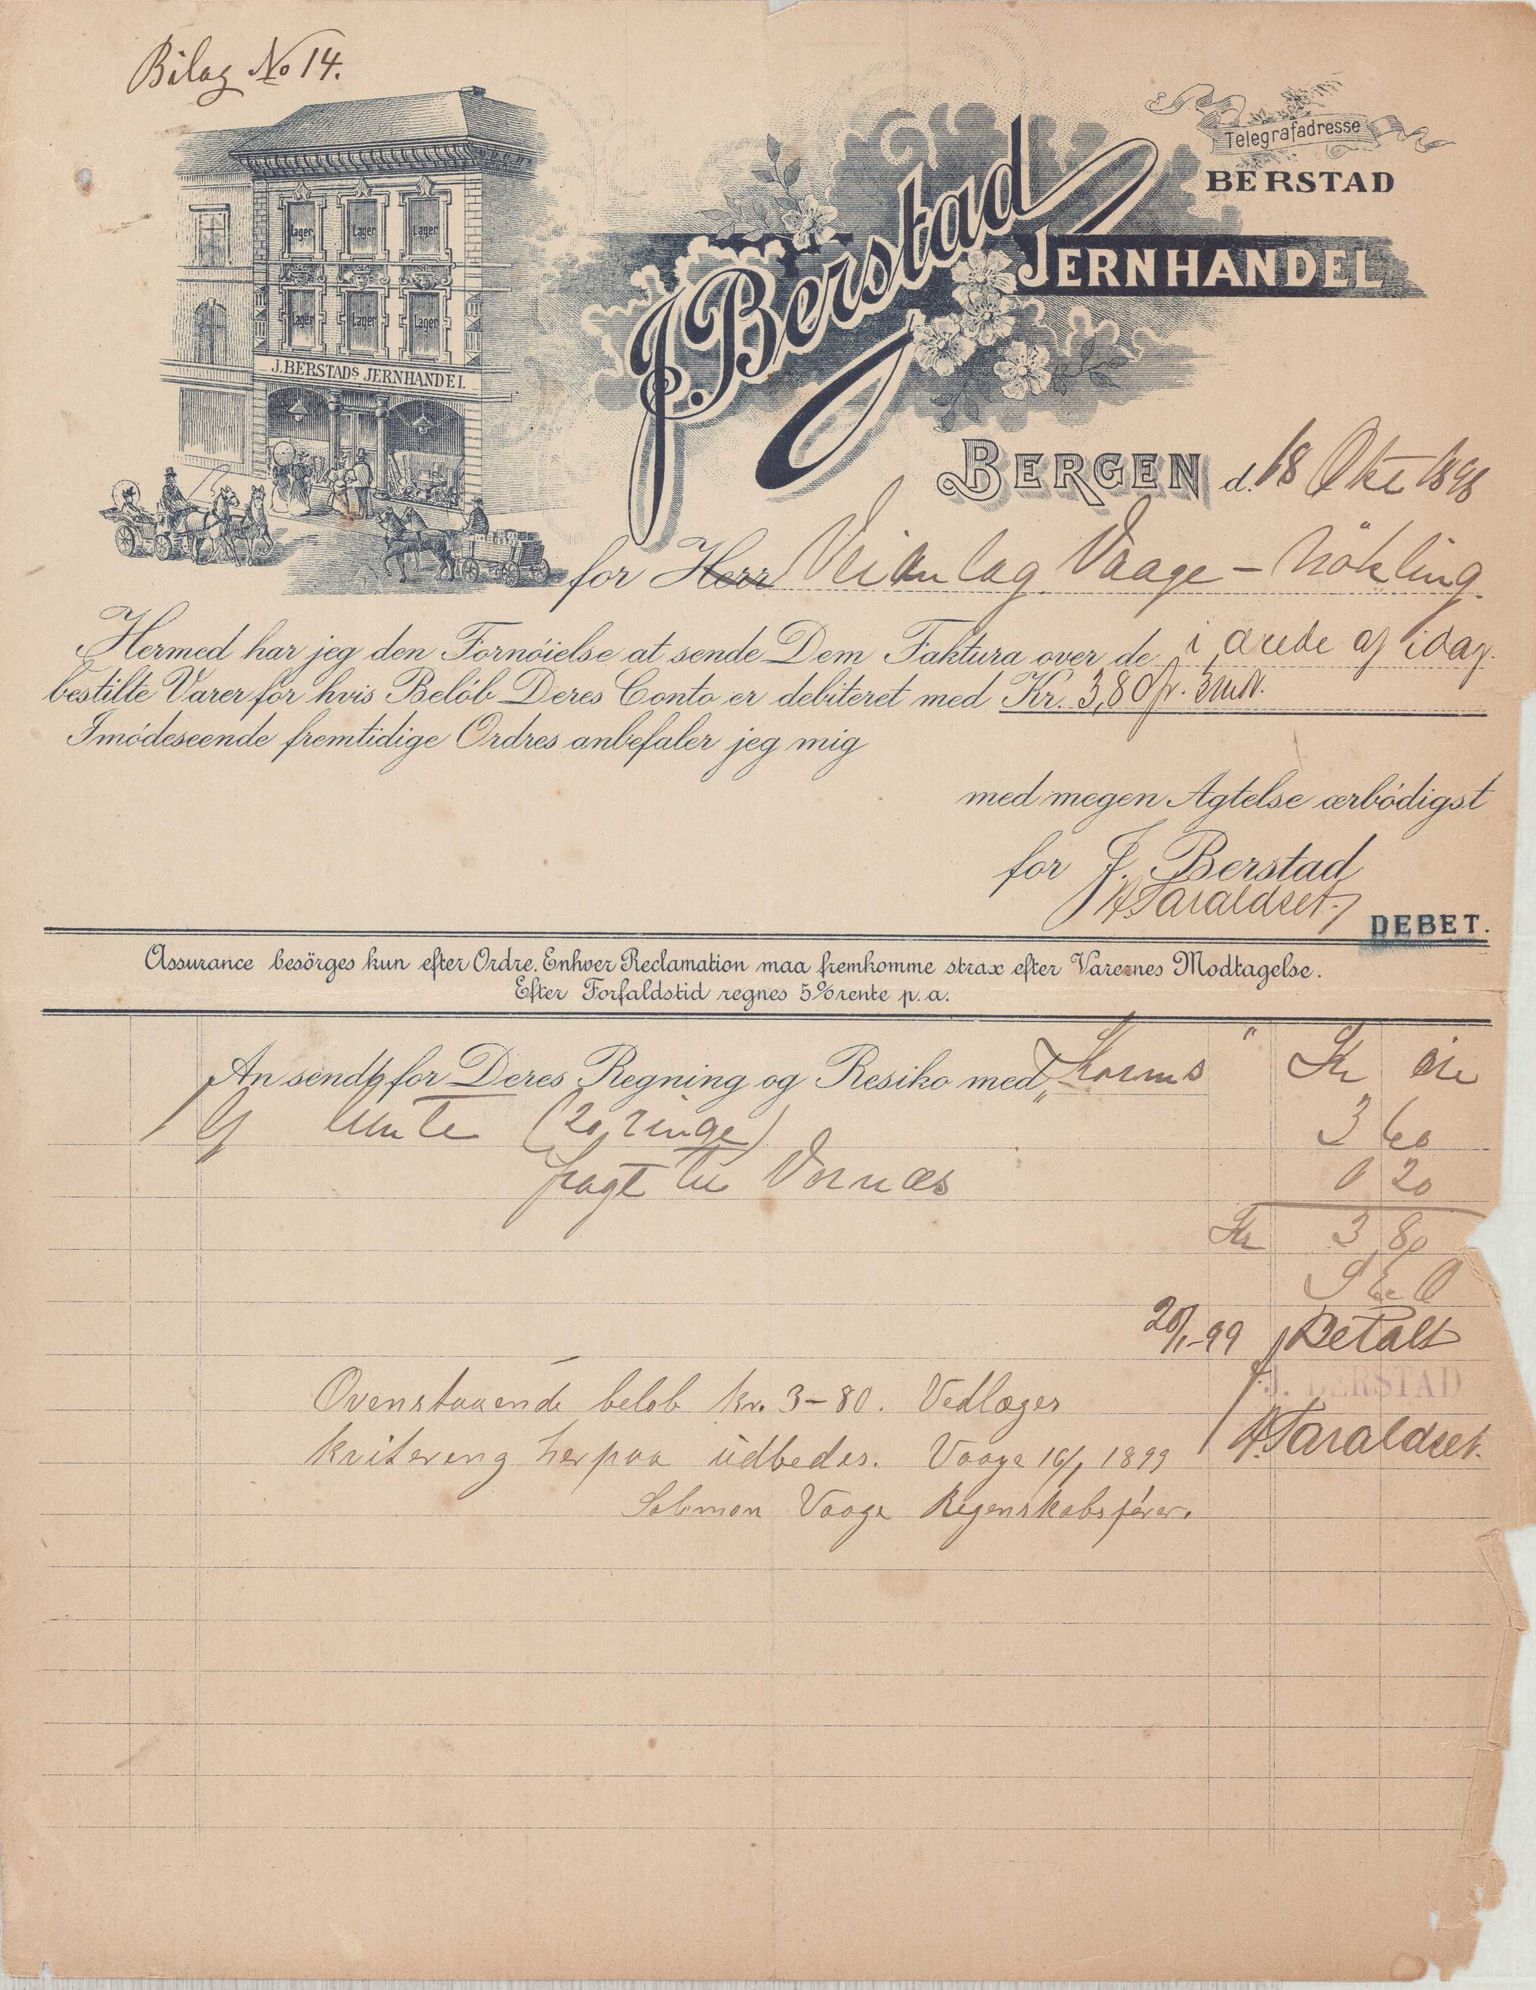 Bilag No 14.
Telegrafadresse
BERSTAD
J. Berstad
JERNHANDEL
Lager Lager Lager
Lager Lager Lager
J. BERSTADS JERNHANDEL
BERGEN d. 18 Okt 1898
for Herr Veianlag Vaage - Nökling.
Hermed har jeg den Fornöielse at sende Dem Faktura over de i ordre af idag
bestilte Varer for hvis Belöb Deres Conto er debiteret med Kr. 3,80 pr. 3 mdr.
Imödeseende fremtidige Ordres anbefaler jeg mig
med megen Agtelse ærbödigst
for J. Berstad
Taraldset.
DEBET.
Assurance besörges kun efter Ordre. Enhver Reclamation maa fremkomme strax efter Varernes Modtagelse.
Efter Forfaldstid regnes 5% rente p. a.
An sendt for Deres Regning og Resiko med "Korms" Kr öre
1 lunte (20 ringe) 3 60
fragt til Vornæs 0 20
Kr 3,80
20/1-99 Betalt
J. BERSTAD
Taraldset.
Ovenstaaende beløb kr. 3-80. Vedlæges
kvitering herpaa udbedes. Vaage 16/1 1899
Salomon Vaage Regenskabsfører.